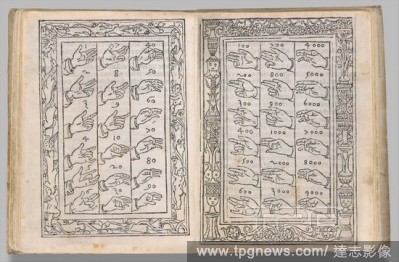 40
2 8 50
3 9 60
4 10 70
20 80
30 90
100 700 4000
200 800 5000
300 900 6000
400 1000 7000
500 2000 8000
600 3000 9000
www.tpgnews.com/達志影像